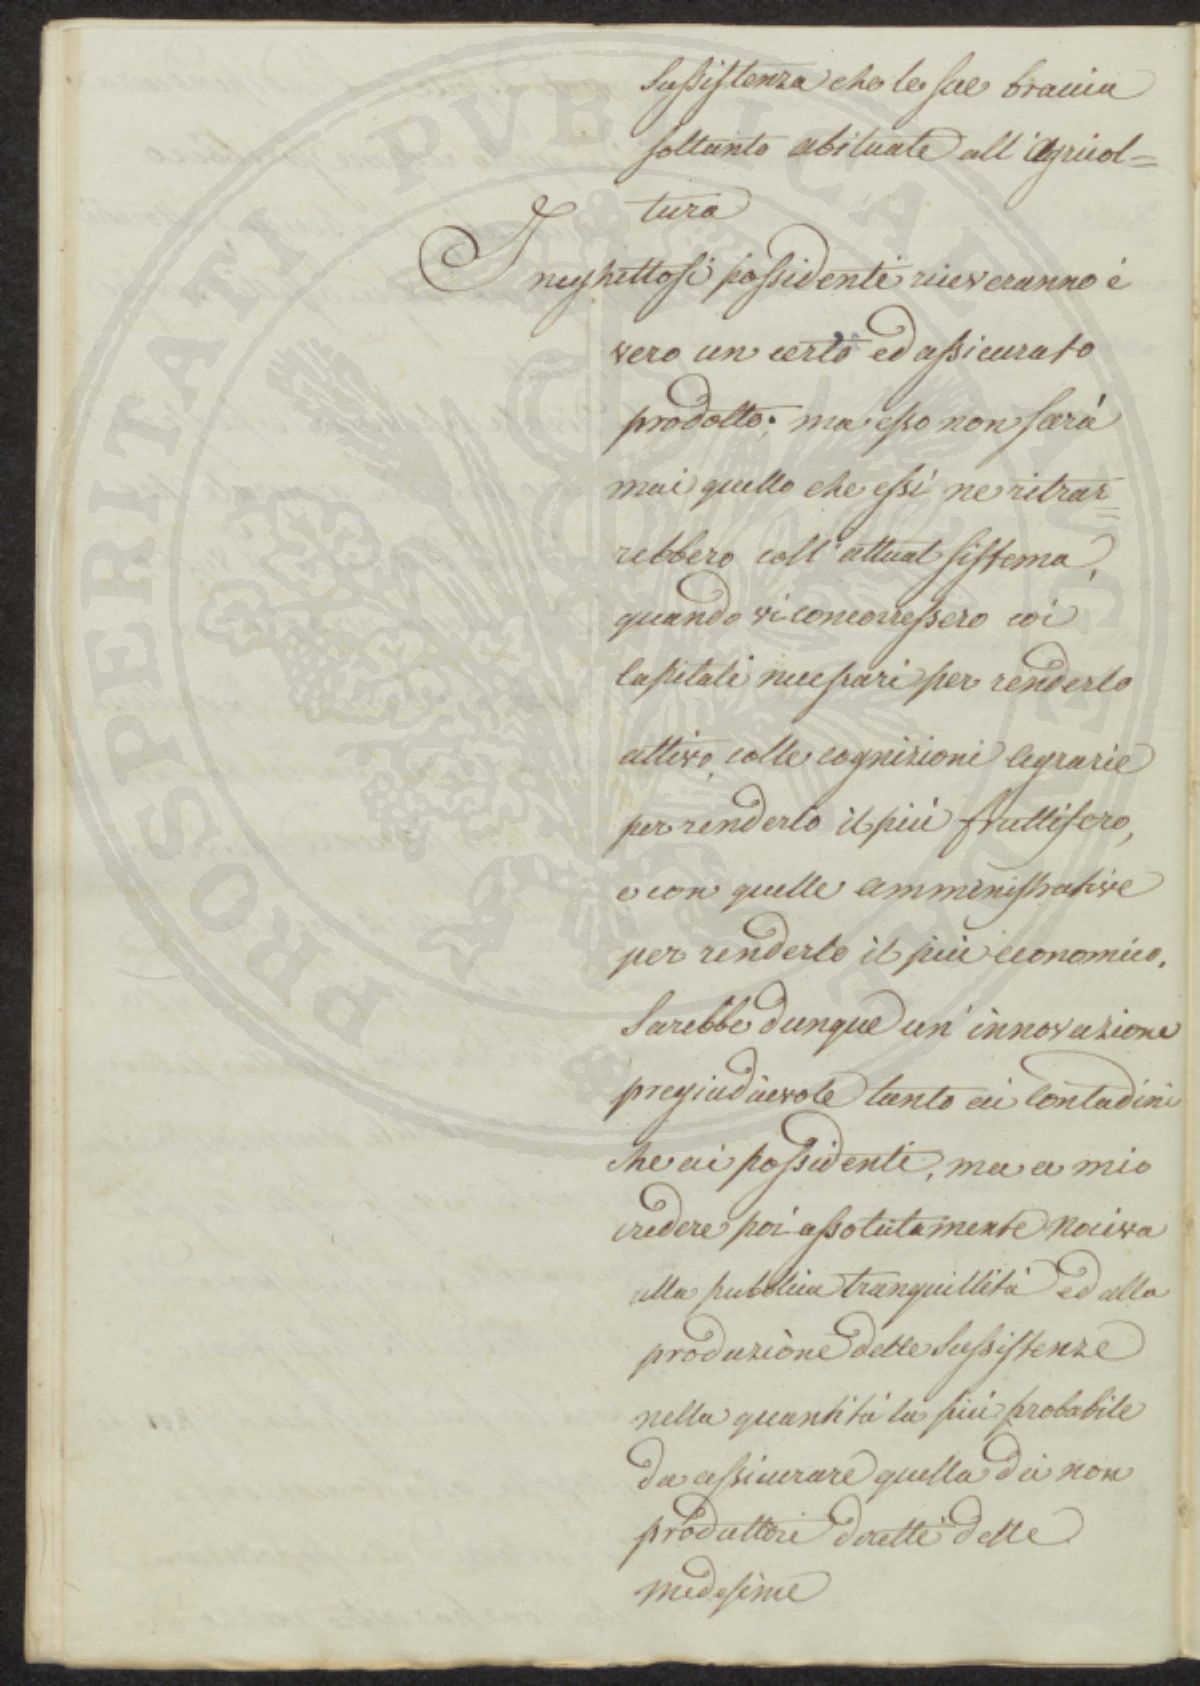 Sussistenza che le sue braccia
soltanto abituate all'Agricol=
tura
I neghittosi possidenti riceveranno é
vero un certo ed assicurato
prodotto; ma esso non sará
mai quello che essi ne ritrar=
rebbero coll'attual sistema,
quando vi concorressero coi
Capitali necessari per renderlo
attivo, colle cognizioni Agrarie
per renderlo il piú fruttifero,
e con quelle amministrative
per renderlo il piú economico.
Sarebbe dunque un'innovazione
pregiudicevole tanto ai Contadini
che ai possidenti, ma a mio
credere poi assolutamente nociva
alla pubblica tranquillitá ed alla
produzione delle Sussistenze
nella quantitá la piú probabile
da assicurare quella dei non
produttori diretti delle
medesime
PROSPERITATI PVBLICAE